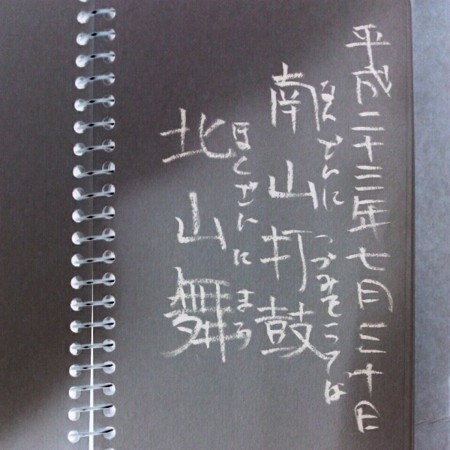 平成二十三年七月三十日
南山打鼓
なんざんに つづみをうてば
北山舞
ほくざんに まう